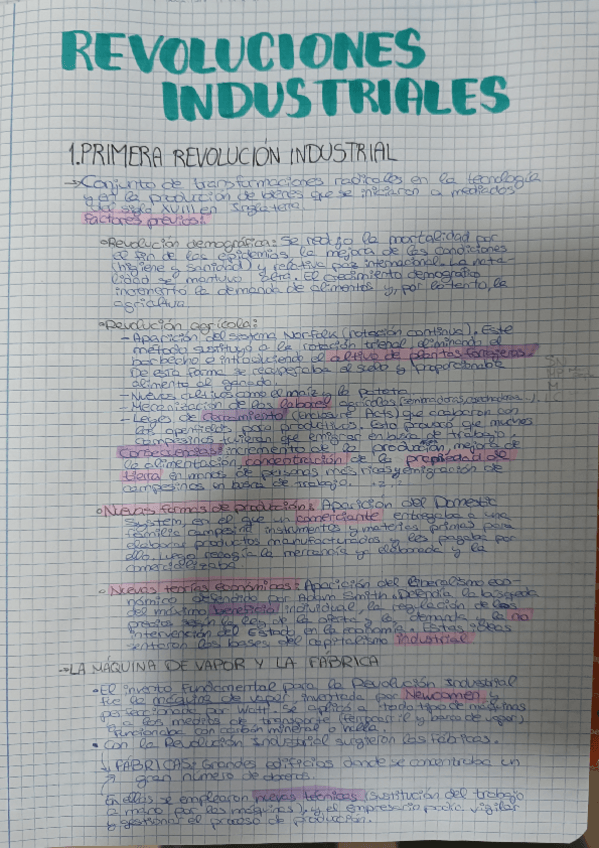 REVOLUCIONES
INDUSTRIALES
1.PRIMERA REVOLUCIÓN INDUSTRIAL
→Conjunto de transformaciones radicales en la tecnología
y en la producción de bienes que se iniciaron a mediados
del siglo XVIII en Inglaterra.
Factores previos:
•Revolución demográfica: Se redujo la mortalidad por
el fin de las epidemias, la mejora de las condiciones
(higiene y sanidad) y relativa paz internacional. La nata-
lidad se mantuvo alta. El crecimiento demográfico
incrementó la demanda de alimentos y, por lo tanto, la
agricultura.
•Revolución agrícola:
- Aparición del sistema Norfolk (rotación continua). Este
método sustituyó a la rotación trienal, eliminando el
barbecho e introduciendo el cultivo de plantas forrajeras.
De esta forma se recuperaba el suelo y proporcionaba
alimento al ganado.
- Nuevos cultivos como el maíz y la patata.
- Mecanización de las labores agrícolas
- Leyes de cercamiento (Enclosure Acts) que acabaron con
los para productivos. Esto provocó que muchos
campesinos tuvieran que emigrar en busca de trabajo.
Consecuencias: incremento de la producción, mejora de
la alimentación, concentración de la propiedad de
tierra en manos de personas más ricas y emigración de
campesinos en busca de trabajo.
• Nuevas formas de producción: Aparición del Domestic
System, en el que un comerciante entregaba a una
familia campesina instrumentos y materias primas para
elaborar productos manufacturados y les pagaba por
ello. Luego recogía la mercancía ya elaborada y la
comercializaba
• Nuevas teorías económicas: Aparición del liberalismo eco-
nómico defendido por Adam Smith. Defendía la búsqueda
del máximo beneficio individual, la regulación de los
precios según la ley de la oferta y la demanda y la no
intervención del Estado en la economía. Estas ideas
sentaron las bases del capitalismo industrial
-LA MÁQUINA DE VAPOR Y LA FÁBRICA
•El invento fundamental para la Revolución Industrial
fue la máquina de vapor, inventada por Newcomen y
perfeccionada por Watt. Se aplicó a todo tipo de máquinas
y a los medios de transporte (ferrocarril y barco de vapor)
Funcionaba con carbón mineral o hulla.
• Con la Revolución Industrial surgieron las fábricas.
FÁBRICAS: Grandes edificios donde se concentraba un
gran número de obreros.
En ellas se emplearon nuevas técnicas (sustitución del trabajo
a mano por las máquinas) y el empresario podía vigilar
y gestionar el proceso de producción.